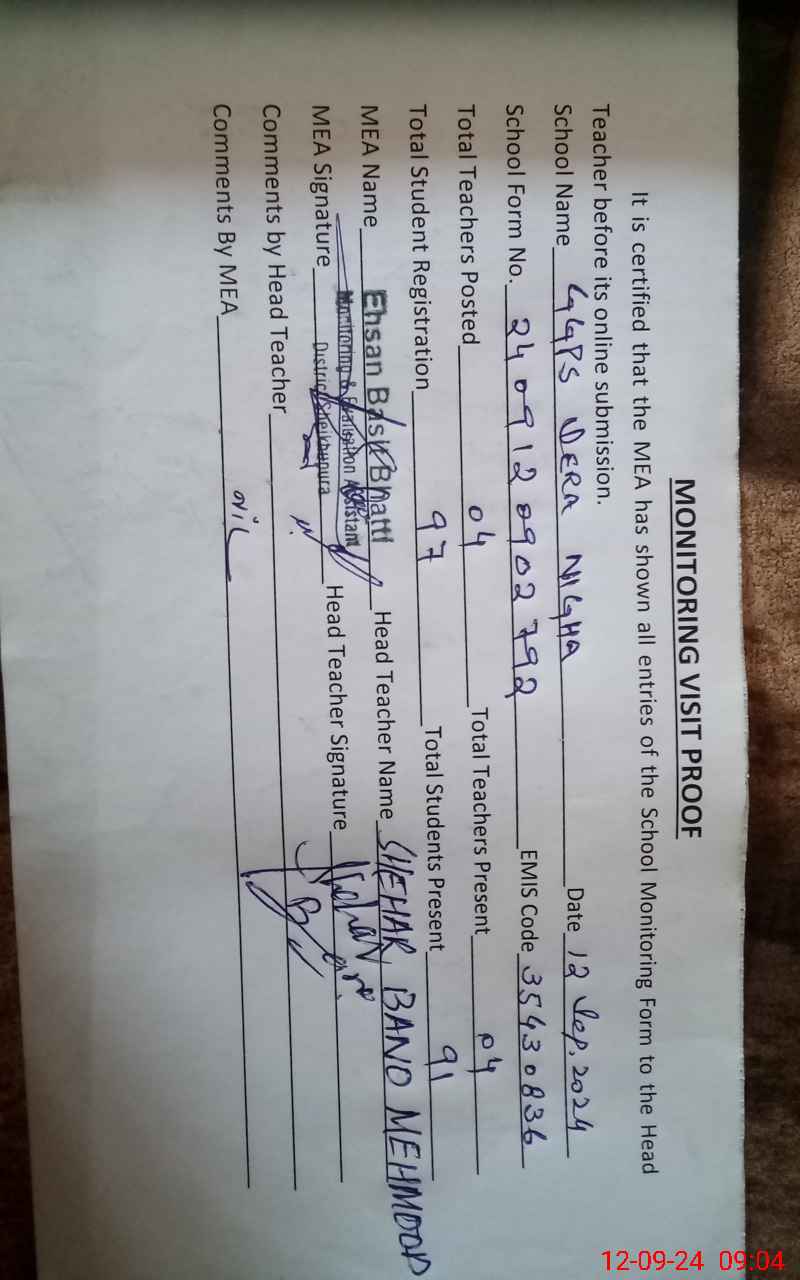 MONITORING VISIT PROOF
It is certified that the MEA has shown all entries of the School Monitoring Form to the Head
Teacher before its online submission.
School Name GGPS DERA NIGHA Date 12 Sep. 2024
School Form No. 240912 0902792 EMIS Code 35430836
Total Teachers Posted 04 Total Teachers Present 04
Total Student Registration 97 Total Students Present 91
MEA Name Ehsan Bhatti Head Teacher Name SHEHAR BANO MEHMOOD
Monitoring & Assistant
MEA Signature District Sheikhupura Head Teacher Signature
Comments by Head Teacher
Comments By MEA Nil
12-09-24 09:04